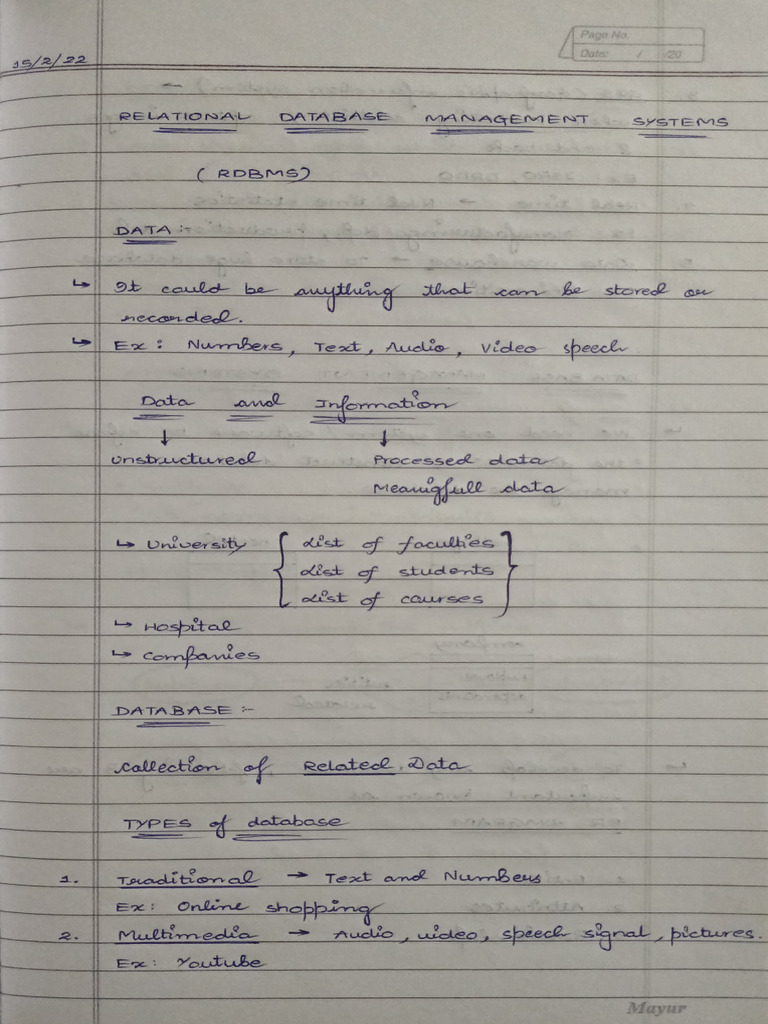 Page No.
Date: / /20
15/2/22
RELATIONAL DATABASE MANAGEMENT SYSTEMS
(RDBMS)
DATA :-
↳ It could be anything that can be stored or
recorded.
↳ Ex: Numbers, Text, Audio, Video speech
Data and Information
↓ ↓
Unstructured Processed data
Meanigfull data
↳ University { List of faculties }
List of students
List of courses
↳ Hospital
↳ Companies
DATABASE :-
Collection of Related Data.
TYPES of database
1. Traditional → Text and Numbers
Ex: Online shopping
2. Multimedia → Audio, video, speech signal, pictures.
Ex: Youtube
Mayur